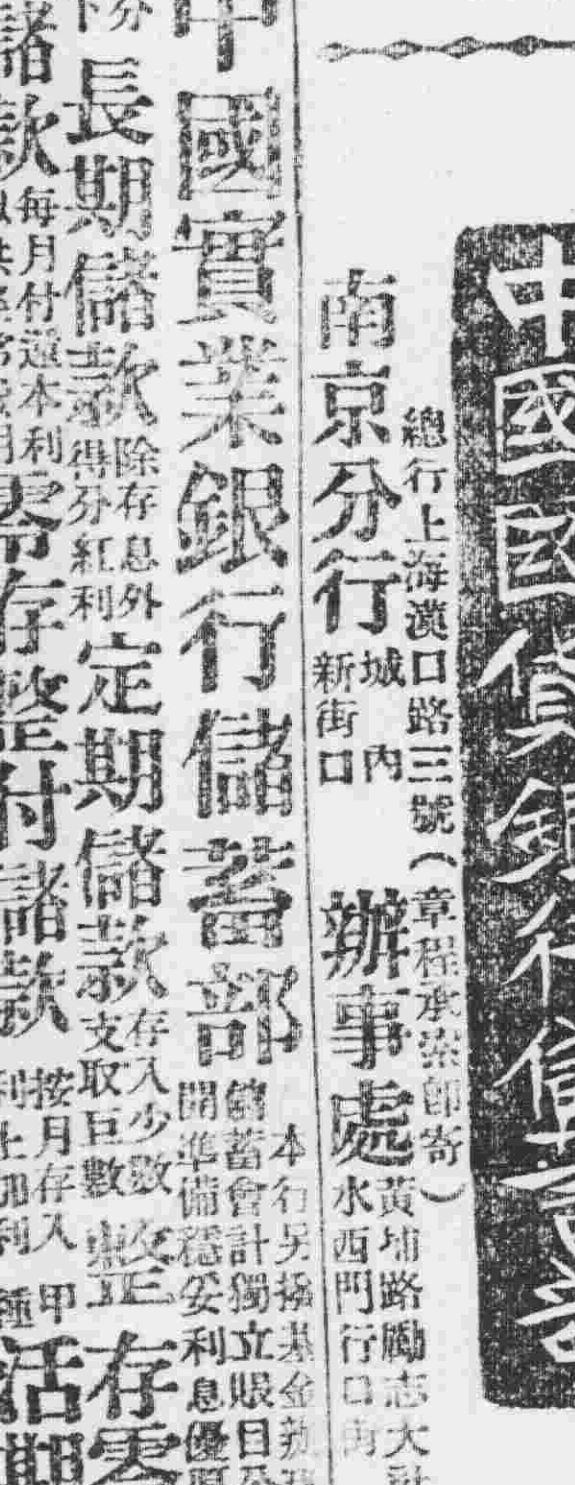 中國國貨銀行儲蓄
總行上海漢口路三號(章程承索即寄)
南京分行
城內
新街口
辦事處
黃埔路勵志大社
水西門行口街
中國實業銀行儲蓄部
本行另撥基金辦理
儲蓄會計獨立賬目公
開準備穩妥利息優厚
長期儲款
除存息外
得分紅利
定期儲款
存入少數
支取巨數
整存零
儲款
每月付還本利
零存整付儲款
按月存入
利上加利
甲種
活期